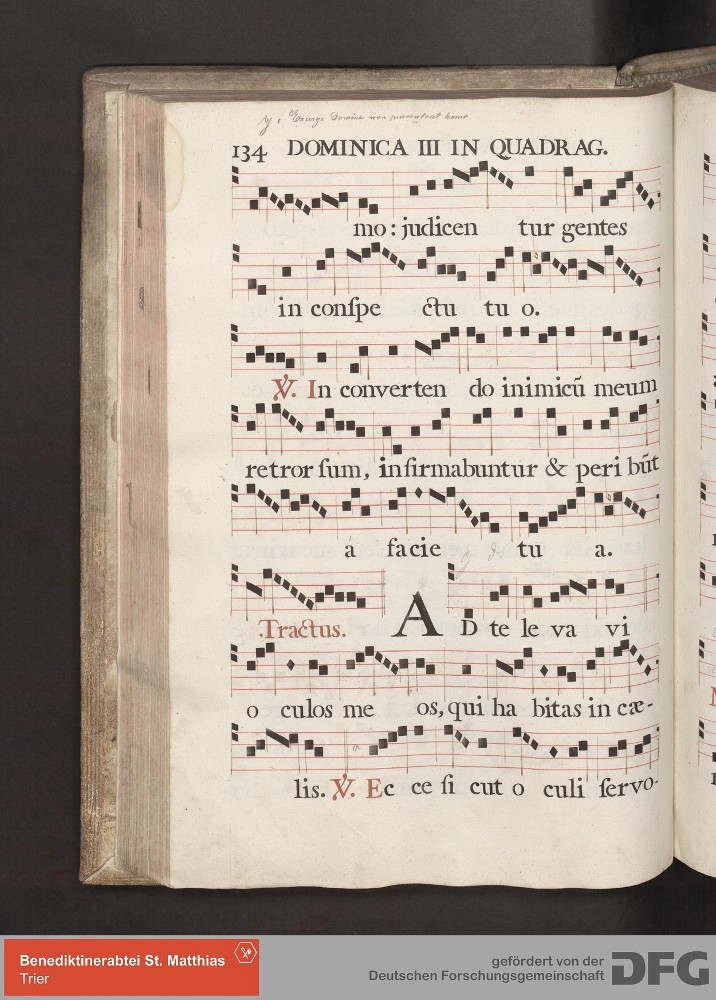 y. Exurge Domine non praevaleat homo
134 DOMINICA III IN QUADRAG.
mo: judicen tur gentes
in conſpe ctu tu o.
℣. In converten do inimicū meum
retror ſum, infirmabuntur & peri būt
á facie tu a.
Tractus. AD te le va vi
o culos me os, qui ha bitas in cæ-
lis. ℣. Ec ce ſi cut o culi ſervo-
Benediktinerabtei St. Matthias
Trier
gefördert von der
Deutschen Forschungsgemeinschaft DFG